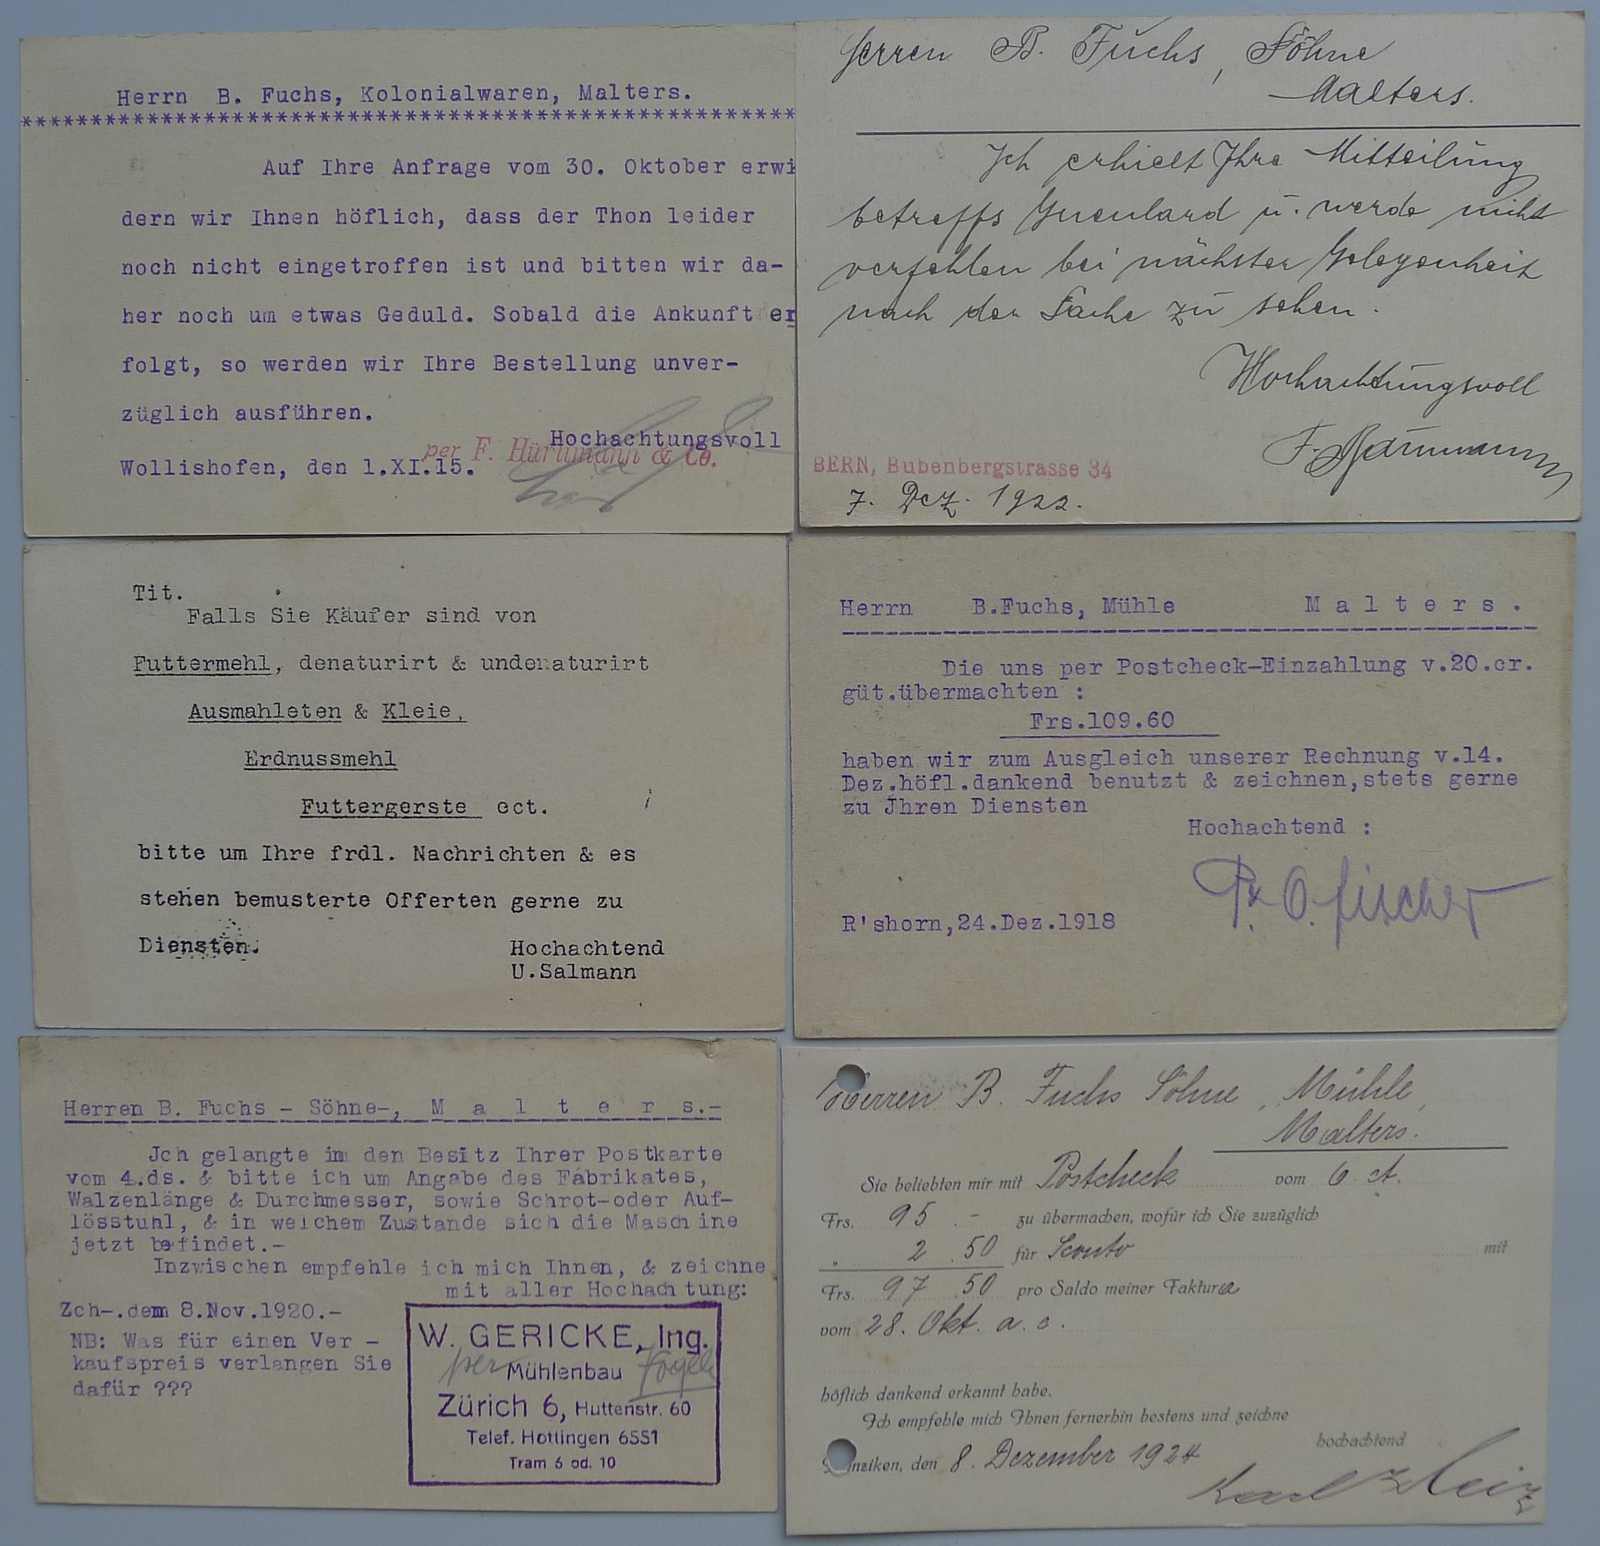 Herrn B. Fuchs, Kolonialwaren, Malters.
********************************************************
Auf Ihre Anfrage vom 30. Oktober erwi
dern wir Ihnen höflich, dass der Thon leider
noch nicht eingetroffen ist und bitten wir da-
her noch um etwas Geduld. Sobald die Ankunft er
folgt, so werden wir Ihre Bestellung unver-
züglich ausführen.
Hochachtungsvoll
per F. Hürlimann & Co.
Wollishofen, den 1.XI.15.
Herren B. Fuchs, Söhne
Malters.
Ich erhielt Ihre Mitteilung
betreffs u. werde nicht
verfehlen bei nächster Gelegenheit
nach der Sache zu sehen.
Hochachtungsvoll
F. Baumann
BERN, Bubenbergstrasse 34
7. Dez. 1922.
Tit.
Falls Sie Käufer sind von
Futtermehl, denaturirt & undenaturirt
Ausmahleten & Kleie,
Erdnussmehl
Futtergerste ect.
bitte um Ihre frdl. Nachrichten & es
stehen bemusterte Offerten gerne zu
Diensten.
Hochachtend
U.Salmann
Herrn B.Fuchs, Mühle M a l t e r s .
Die uns per Postcheck-Einzahlung v.20.cr.
güt.übermachten :
Frs.109.60
haben wir zum Ausgleich unserer Rechnung v.14.
Dez.höfl.dankend benutzt & zeichnen,stets gerne
zu Jhren Diensten
Hochachtend :
O. Fischer
R'shorn,24.Dez.1918
Herren B. Fuchs - Söhne-, M a l t e r s.-
Jch gelangte im den Besitz Ihrer Postkarte
vom 4.ds. & bitte ich um Angabe des Fabrikates,
Walzenlänge & Durchmesser, sowie Schrot-oder Auf-
lösstuhl, & in welchem Zustande sich die Maschine
jetzt befindet.-
Inzwischen empfehle ich mich Ihnen, & zeichne
mit aller Hochachtung:
Zch-.dem 8.Nov.1920.-
NB: Was für einen Ver -
kaufspreis verlangen Sie
dafür ???
W. GERICKE, Ing.
per Mühlenbau
Zürich 6, Huttenstr. 60
Telef. Hottingen 6551
Tram 6 od. 10
Herren B. Fuchs Söhne, Mühle,
Malters.
Sie beliebten mir mit Postcheck vom 6. ct.
Frs. 95.- zu übermachen, wofür ich Sie zuzüglich
" 2.50 für Sconto mit
Frs. 97.50 pro Saldo meiner Faktura
vom 28. Okt. a. c.
höflich dankend erkannt habe.
Ich empfehle mich Ihnen fernerhin bestens und zeichne
hochachtend
nziken, den 8. Dezember 1924
Karl